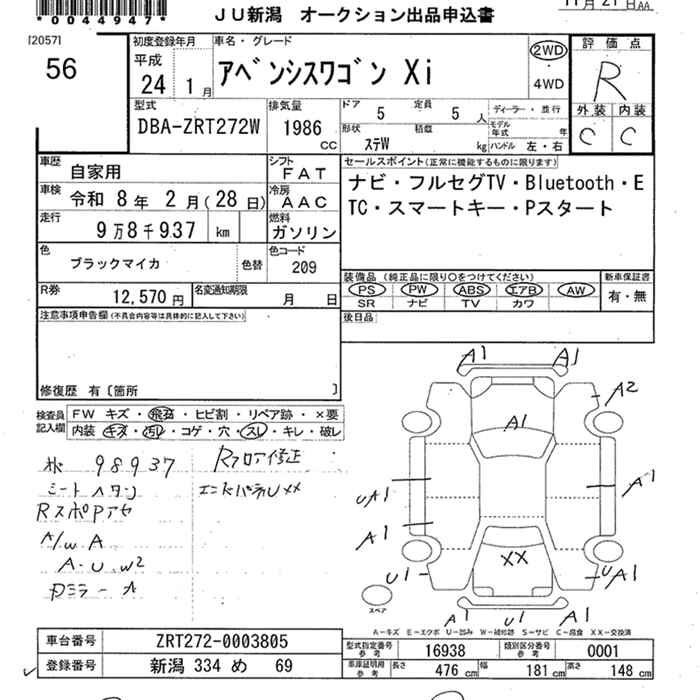 *0044947*
JU新潟 オークション出品申込書
11月21日AA
[2057]
56
初度登録年月
平成
24 1月
車名・グレード
アベンシスワゴン Xi
2WD
4WD
評価点
R
外装 内装
C C
型式
DBA-ZRT272W
排気量
1986
CC
ドア 5 定員 5 人
形状 ステW 積載 kg
ディーラー・並行
モデル年式 年
ハンドル 左・右
車歴 自家用
シフト FAT
車検 令和 8年 2月(28日)
冷房 AAC
走行 9万8千937 km
燃料 ガソリン
色 ブラックマイカ 色替
色コード 209
R券 12,570円
名変通知期限 月 日
セールスポイント(正常に機能するものに限ります)
ナビ・フルセグTV・Bluetooth・E
TC・スマートキー・Pスタート
装備品(純正品に限り○をつけてください)
PS PW ABS エアB AW
SR ナビ TV カワ
新車保証書
有・無
後日品
注意事項申告欄(不具合内容等は具体的に記入して下さい)
修復歴 有〔箇所 〕
検査員記入欄
FW キズ・飛石・ヒビ割・リペア跡・×要
内装 キズ・汚れ・コゲ・穴・スレ・キレ・破レ
98937
Rフロア修正
シートヘタリ
エンドパネルUXX
RスポPアセ
A/W A
A・U・W2
ドミラーA
A1 A1
A2
A1
UA1
A1
A1
XX
U1
UA1
A1 U1 A1
スペア
A-キズ E-エクボ U-凹み W-補修跡 S-サビ C-腐食 XX-交換済
車台番号 ZRT272-0003805
登録番号 新潟 334 め 69
型式指定番号 参考 16938
類別区分番号 参考 0001
車庫証明用 参考 長さ 476 cm 幅 181 cm 高さ 148 cm